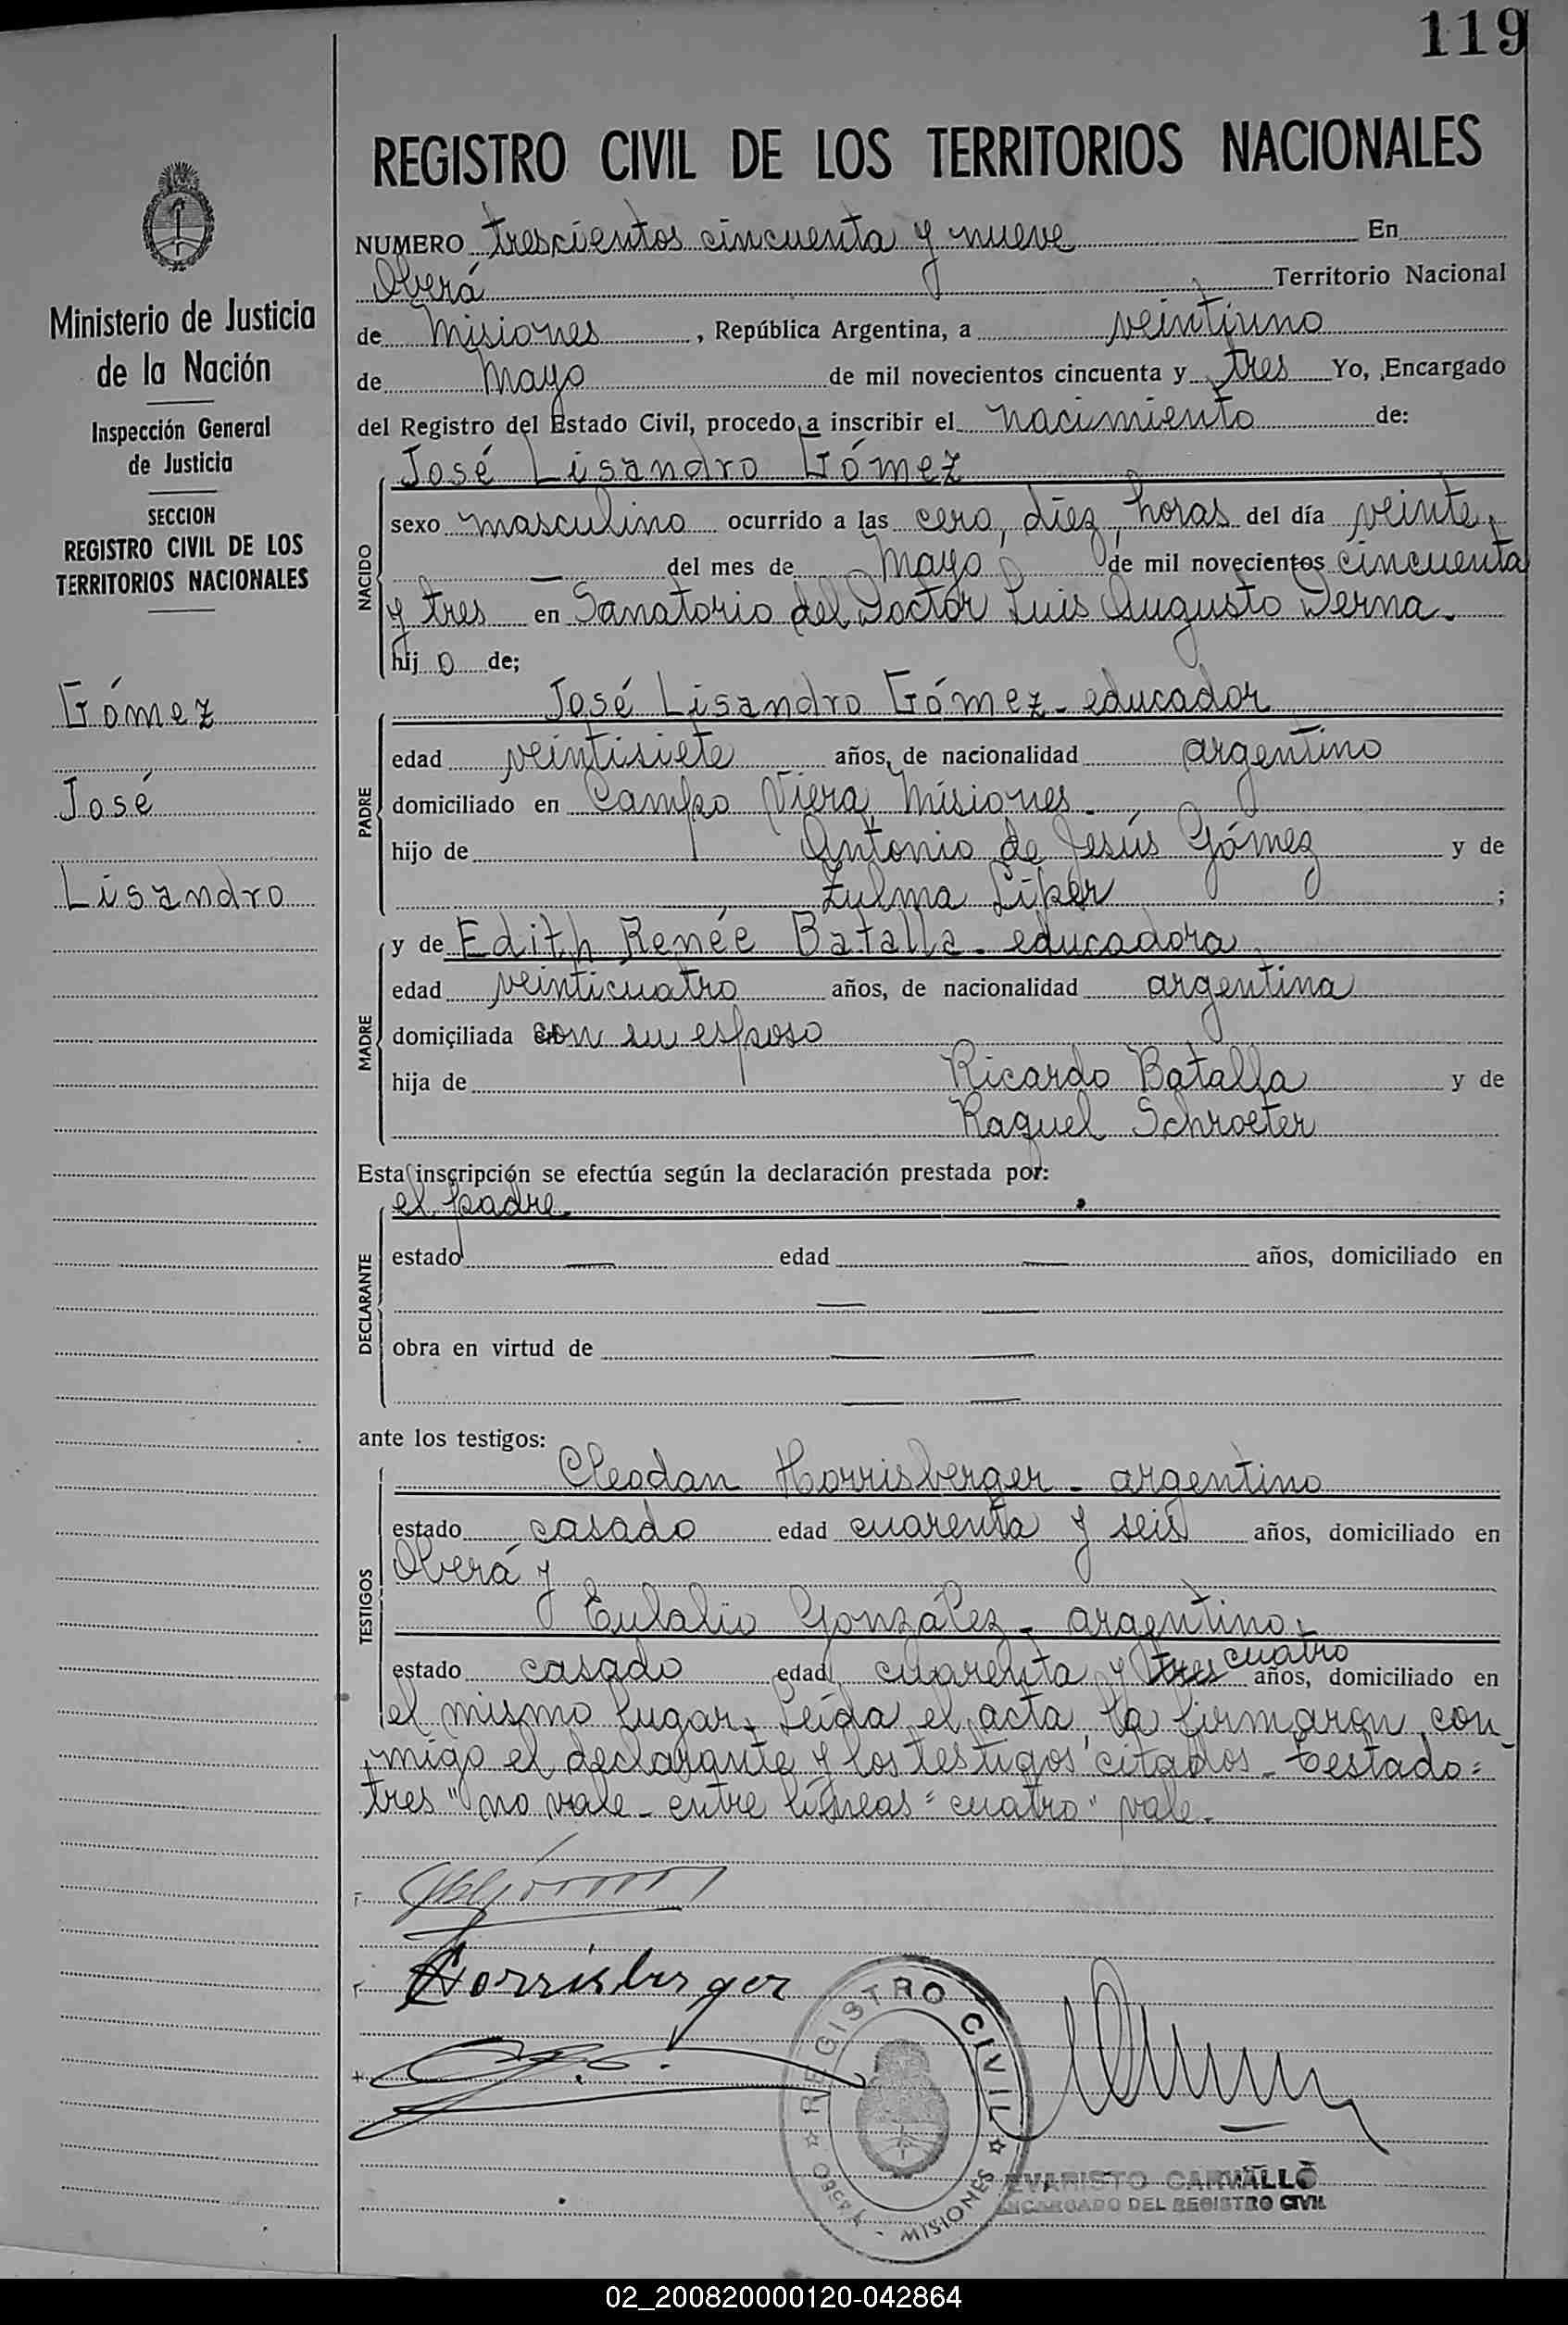 119
REGISTRO CIVIL DE LOS TERRITORIOS NACIONALES
Ministerio de Justicia
de la Nación
Inspección General
de Justicia
SECCION
REGISTRO CIVIL DE LOS
TERRITORIOS NACIONALES
Gómez
José
Lisandro
NUMERO trescientos cincuenta y nueve En
Oberá Territorio Nacional
de Misiones, República Argentina, a veintiuno
de Mayo de mil novecientos cincuenta y tres Yo, Encargado
del Registro del Estado Civil, procedo a inscribir el nacimiento de:
José Lisandro Gómez
NACIDO
sexo masculino ocurrido a las cero, diez, horas del día veinte,
— del mes de Mayo de mil novecientos cincuenta
y tres en Sanatorio del Doctor Luis Augusto Derna.
hijo de;
José Lisandro Gómez - educador
PADRE
edad veintisiete años, de nacionalidad argentino
domiciliado en Campo Viera, Misiones.
hijo de Antonio de Jesús Gómez y de
Zulma Liker ;
y de Edith Renée Batalla - educadora
MADRE
edad veinticuatro años, de nacionalidad argentina
domiciliada con su esposo
hija de Ricardo Batalla y de
Raquel Schroeter
Esta inscripción se efectúa según la declaración prestada por:
el padre.
DECLARANTE
estado — edad — años, domiciliado en
— —
obra en virtud de — —
— —
ante los testigos:
TESTIGOS
Cleodan Horrisberger - argentino
estado casado edad cuarenta y seis años, domiciliado en
Oberá y
Eulalio González - argentino,
estado casado edad cuarenta y tres cuatro años, domiciliado en
el mismo lugar. Leída el acta, la firmaron con-
migo el declarante y los testigos citados - Testado:
tres" no vale - entre líneas "cuatro" vale.
Horrisberger
REGISTRO CIVIL
OBERA - MISIONES
EVARISTO CARVALLO
ENCARGADO DEL REGISTRO CIVIL
02_200820000120-042864